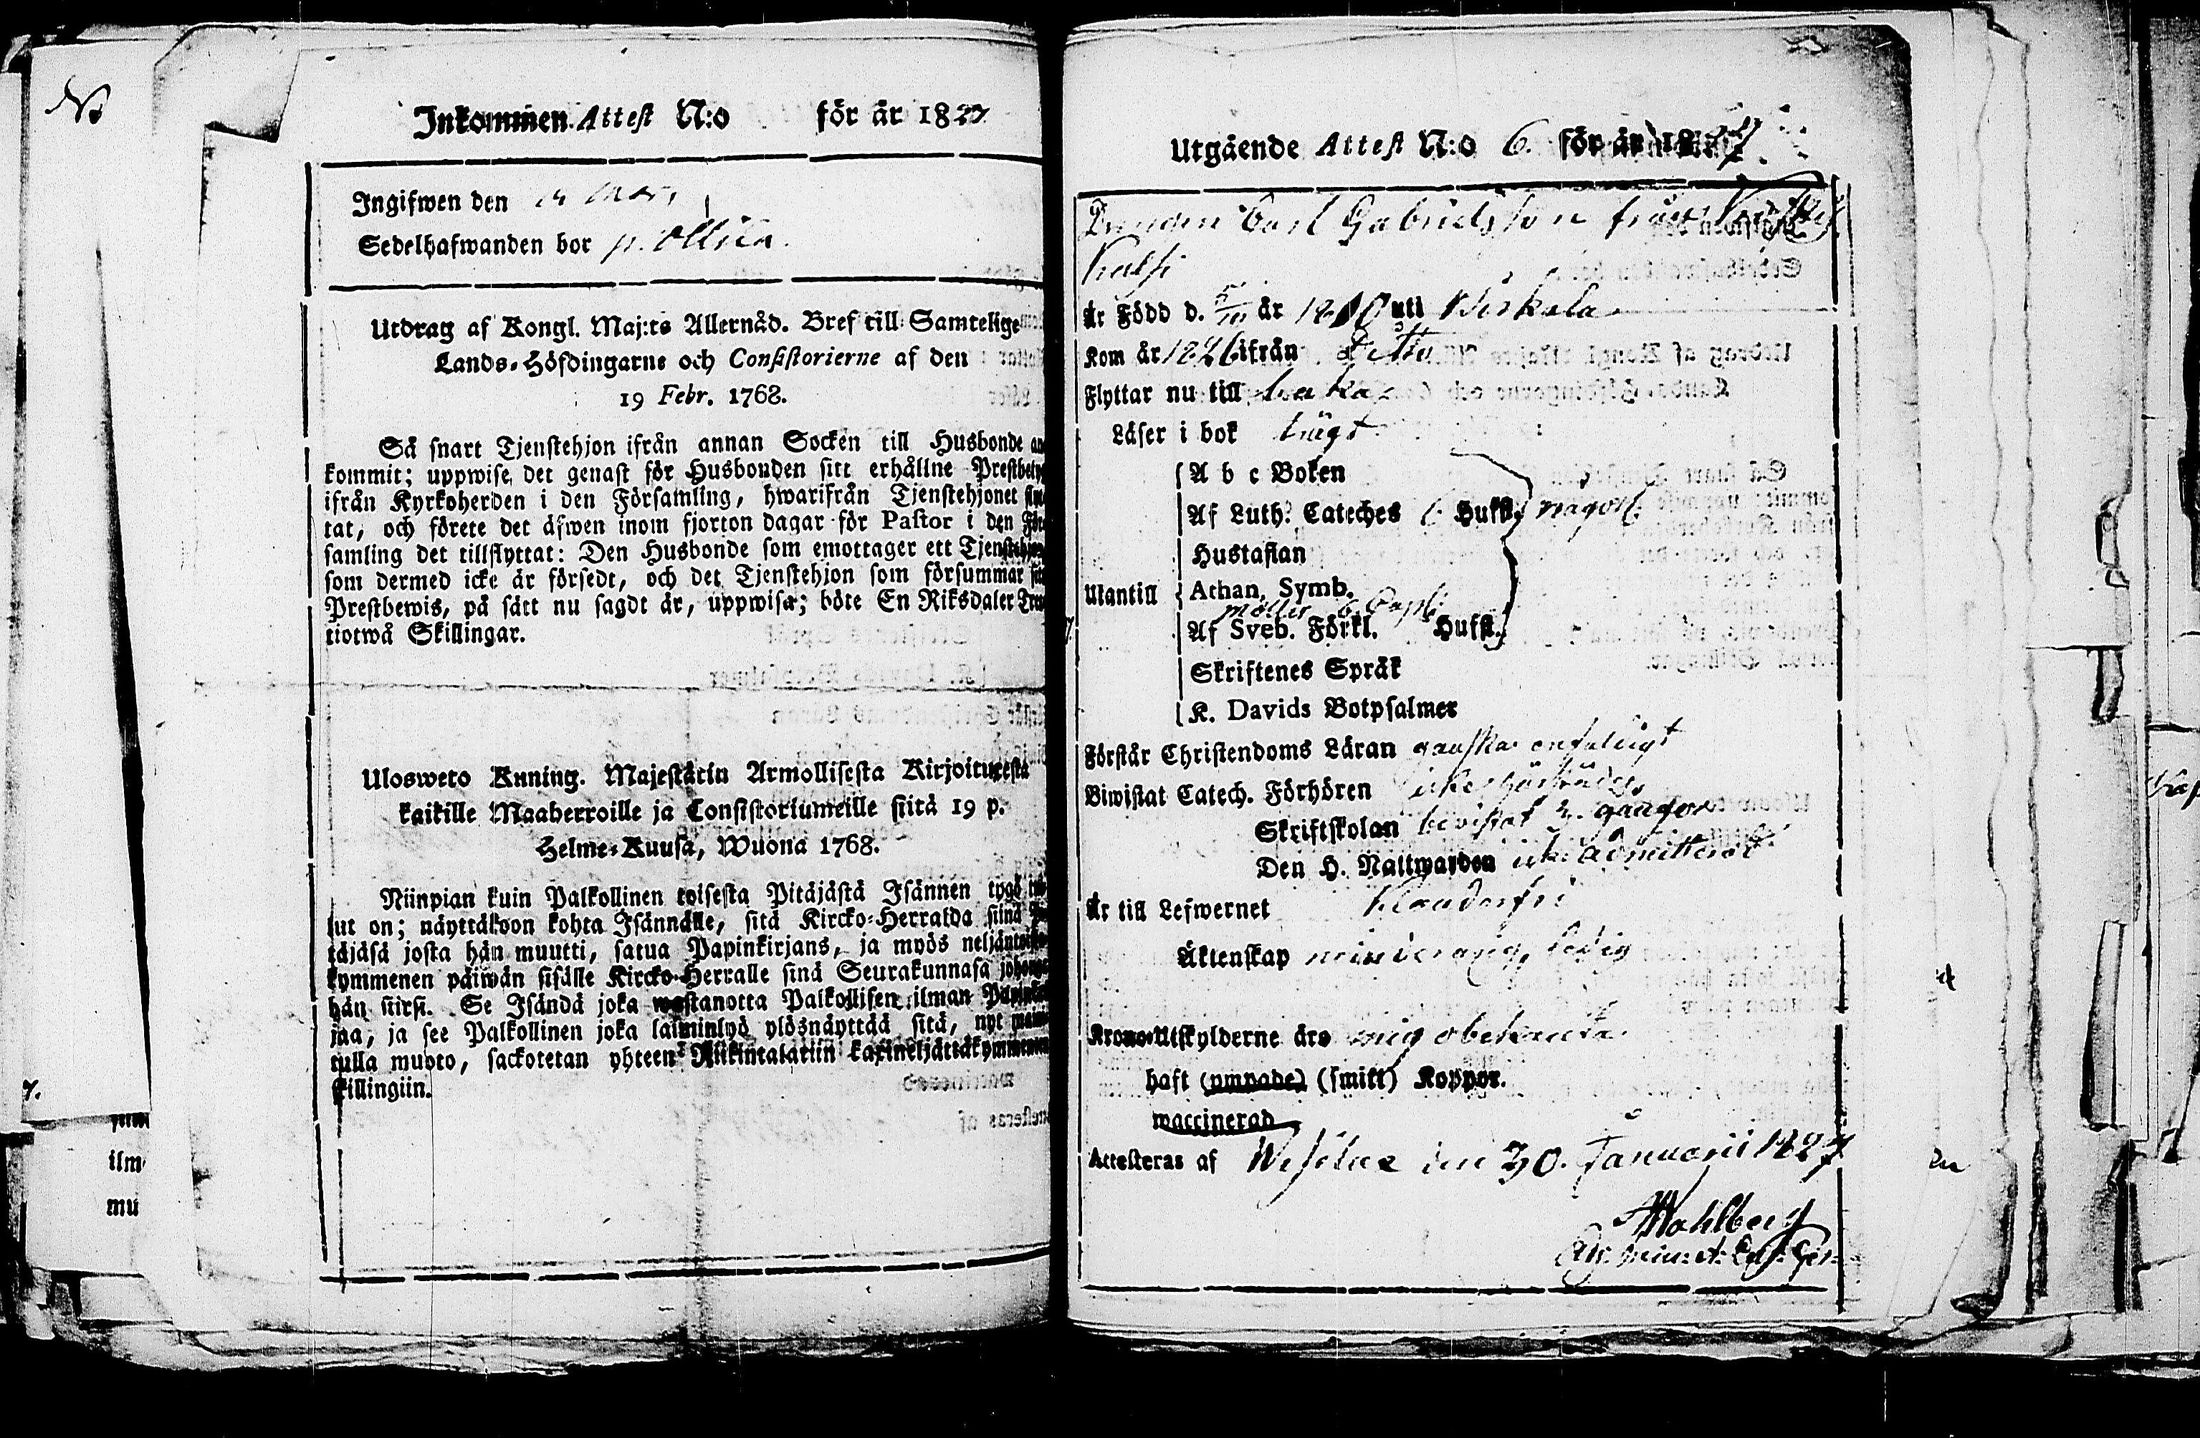 Inkommen Attest N:o för år 1827
Ingifwen den 14 Mars
Sedelhafwanden bor p. Ollila
Utdrag af Kongl. Maj:ts Allernåd. Bref till Samtelige
Lands-Höfdingarne och Consistorierne af den
19 Febr. 1768.
Så snart Tjenstehjon ifrån annan Socken till Husbonde an
kommit; uppwise det genast för Husbonden sitt erhållne Prestbetyg
ifrån Kyrkoherden i den Församling, hwarifrån Tjenstehjonet flyt
tat, och förete det äfwen inom fjorton dagar för Pastor i den För
samling det tillflyttat: Den Husbonde som emottager ett Tjenstehjon
som dermed icke är försedt, och det Tjenstehjon som försummar sitt
Prestbewis, på sätt nu sagdt är, uppwisa; böte En Riksdaler Tret
tiotwå Skillingar.
Ulosweto Kuning. Majestätin Armollisesta Kirjoituxesta
kaikille Maaherroille ja Consistoriumeille siitä 19 p.
Helme-Kuusa, Wuona 1768.
Niinpian kuin Palkollinen toisesta Pitäjästä Isännen tygö tul
lut on; näyttäkoon kohta Isännälle, sitä Kircko-Herralda siinä Pi
täjäsä josta hän muutti, satua Papinkirjans, ja myös neljäntoista
kymmenen päiwän sisälle Kircko-Herralle sinä Seurakunnasa johonga
hän siirsi. Se Isändä joka wastanotta Palkollisen ilman Papinkir
jaa, ja see Palkollinen joka laiminlyö ylösnäyttää sitä, nyt main
tulla muoto, sackotetan yhteen Riikintalariin kaxineljättäkymmenen
killingiin.
Utgående Attest N:o 6. för år 1827
Drengen Carl Gabrielsson från
Är Född d. 5/10 år 1810 uti Birkala
Kom år 1826 ifrån Ditto
Flyttar nu till baka
Läser i bok trögt
A b c Boken
Af Luth. Cateches 6 Hufst. någott
Hustaflan
Utantill Athan. Symb.
möller 6 Capit:
Af Sveb. Förkl. Hufst.
Skriftenes Språk
K. Davids Botpsalmer
Förstår Christendoms Läran ganska enfaldigt
Biwistat Catech. Förhören
Skriftskolan bevistat 2 gånger
Den H. Nattwarden icke admitterad
Är till Lefwernet klanderfri
Äktenskap minderårig, ledig
Krono-Utskylderne äro mig obekanta
haft (ympade) (smitt) Koppor.
waccinerad
Attesteras af Wesilax den 30. Januarii 1827
Wahlberg